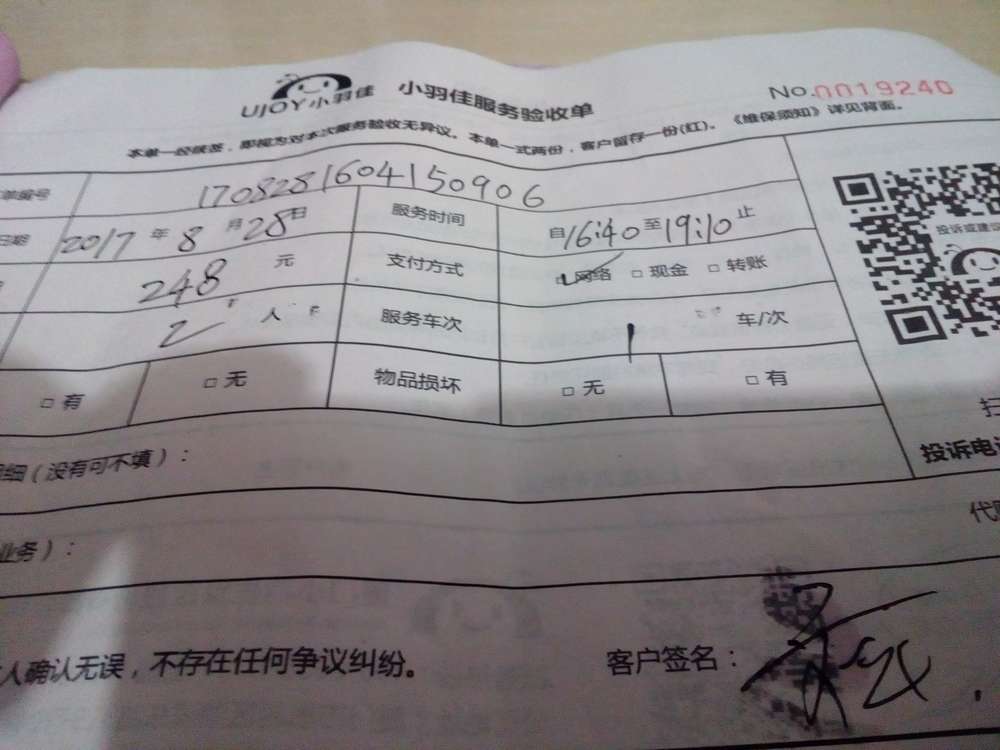 UJOY小羽佳 小羽佳服务验收单 No.0019240
本单一经候签，即视为对本次服务验收无异议。本单一式两份，客户留存一份(红)。《维保须知》详见背面。
单编号 1708281604150906
日期 2017年8月28日 服务时间 自16:40至19:10止
248元 支付方式 □网络 □现金 □转账
2人 服务车次 1车/次
□有 □无 物品损坏 □无 □有
投诉或建议
扫
投诉电话
细（没有可不填）：
代
业务）：
人确认无误，不存在任何争议纠纷。 客户签名：